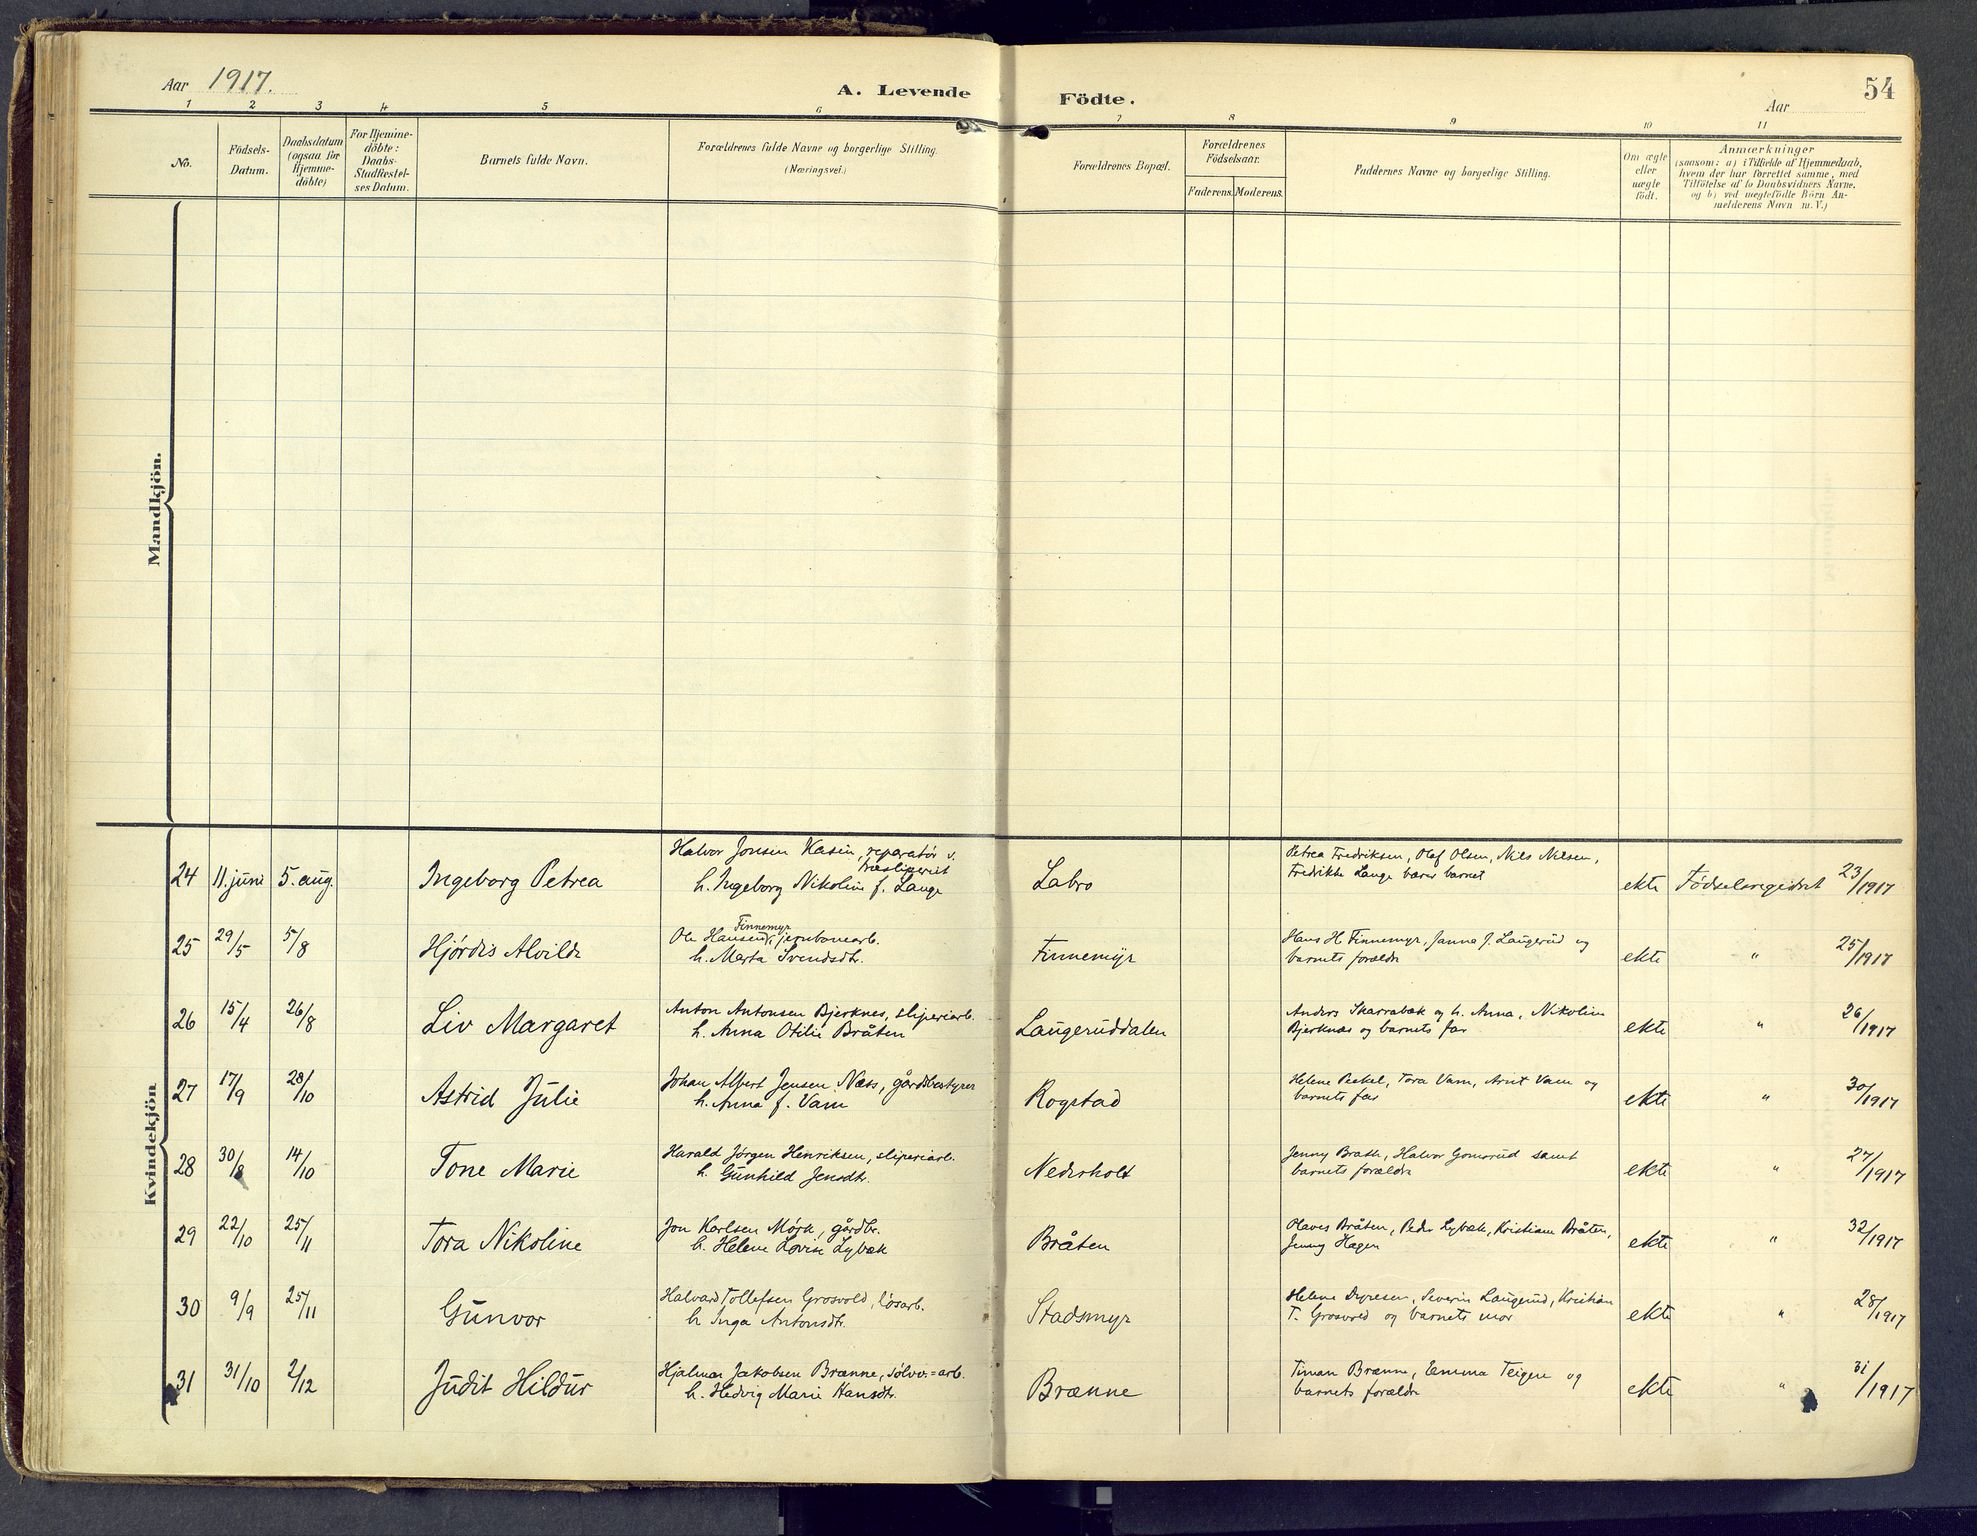 Aar 1917. A. Levende Födte. Aar 54
1 2 3 4 5 6 7 8 9 10 11
No. Födsels-Datum. Daabsdatum (ogsaa for Hjemme-döbte) For Hjemme-döbte: Daabs-Stadfæstel-ses Datum. Barnets fulde Navn. Forældrenes fulde Navne og borgerlige Stilling. (Næringsvei.) Forældrenes Bopæl. Forældrenes Födselsaar. Faderens. Moderens. Faddernes Navne og borgerlige Stilling. Om ægte eller uægte födt. Anmærkninger (saasom: a) i Tilfælde af Hjemmedaab, hvem der har forrettet samme, med Tilföielse af to Daabsvidners Navne, og b) ved uægtefödte Börn An-melderens Navn m. V.)
Mandkjön.
Kvindekjön
24 11. juni 5. aug. Ingeborg Petrea Halvor Jonsen Kasin, reparatör v. Træsliperiet
h. Ingeborg Nikoline f. Lange Labro Petrea Fredriksen, Olaf Olsen, Nils Nilsen,
Fredrikke Lange bærer barnet ekte Födselsregistret 23/1917
25 29/5 5/8 Hjørdis Alvilde Ole Hansen Finnemyr, jernbanearb.
h. Marta Svendsdtr. Finnemyr Hans H. Finnemyr, Janna J. Laugerud og
barnets forældre ekte " 25/1917
26 15/4 26/8 Liv Margaret Anton Antonsen Bjerknes, sliperiarb.
h. Anna Otilie Bråten Laugeruddalen Anders Skarrabæk og h. Anna, Nikoline
Bjerknæs og barnets far ekte " 26/1917
27 17/9 28/10 Astrid Julie Johan Albert Jensen Næss, gårdsbestyrer
h. Anna f. Vam Rogstad Helene Peckel, Tora Vam, Arnt Vam og
barnets far ekte " 30/1917
28 30/8 14/10 Tone Marie Harald Jörgen Henriksen, sliperiarb.
h. Gunhild Jensdtr. Nederholt Jenny Brath, Halvor Gomsrud samt
barnets forældre ekte " 27/1917
29 22/10 25/11 Tora Nikoline Jon Karlsen Mörk, gårdbr.
h. Helene Lovise Lybæk Bråten Olaves Bråten, Peder Lybæk, Kristiane Bråten,
Jenny Hagen ekte " 32/1917
30 9/9 25/11 Gunvor Halvard Tollefsen Grosvold, løsarb.
h. Inga Antonsdtr. Stadsmyr Helene Dyresen, Severin Laugerud, Kristian
T. Grosvold og barnets mor ekte " 28/1917
31 31/10 2/12 Judit Hildur Hjalmar Jakobsen Brænne, sølvv.=arb.
h. Hedvig Marie Hansdtr. Brænne Timan Brænne, Emma Teigen og
barnets forældre ekte " 31/1917